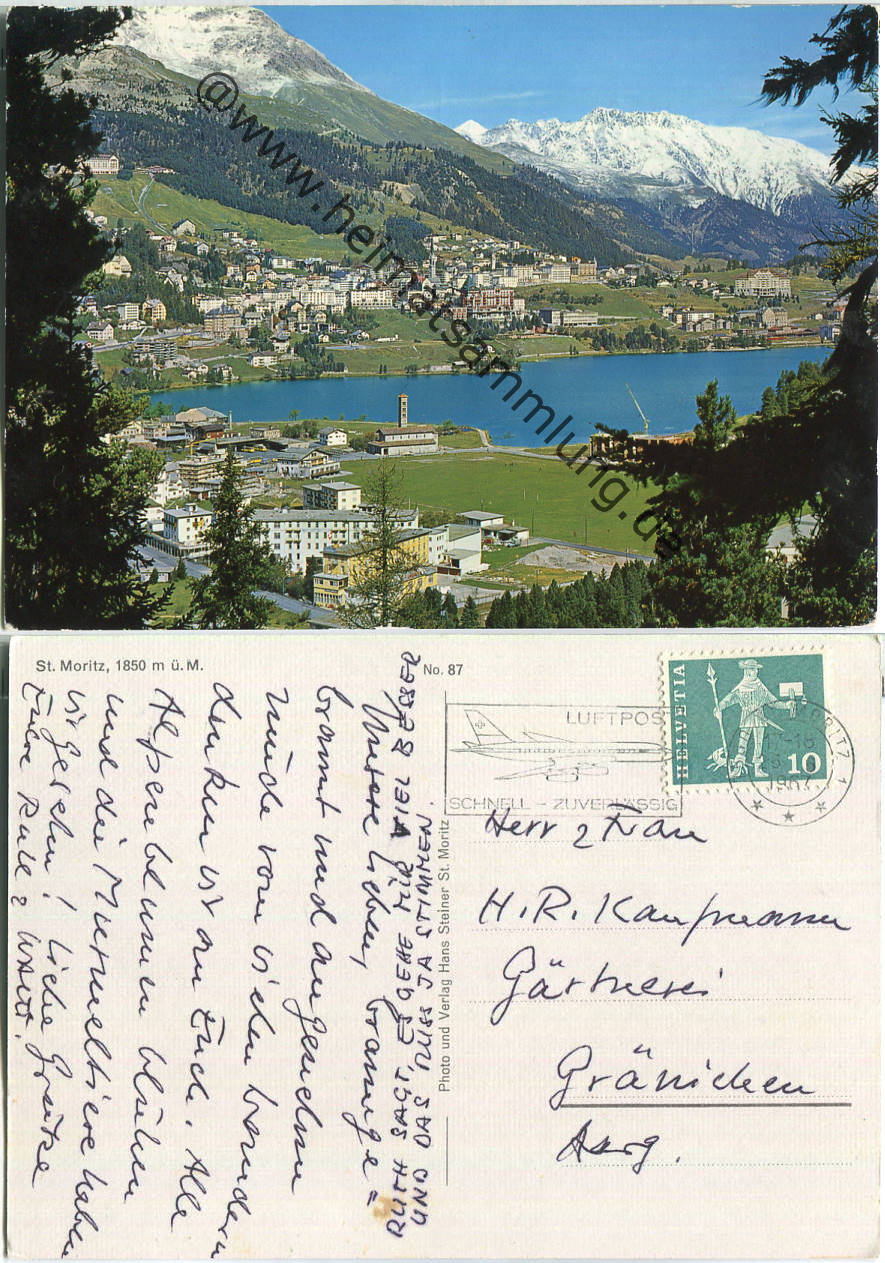 @www.heimatsammlung.de
St. Moritz, 1850 m ü. M.
No. 87
LUFTPOST
SCHNELL - ZUVERLÄSSIG
HELVETIA
10
MORITZ 1
1967
Photo und Verlag Hans Steiner St. Moritz
Herr & Frau
H. R. Kaufmann
Gärtnerei
Gränichen
Aarg.
RUTH SAGT, ES GEHE MIR VIEL BESSER
UND DAS MUSS JA STIMMEN.
Unsere Lieben, braunge=
brannt und angenehm
müde vom vielen wandern
denken wir an Euch. Alle
Alpenblumen blühen
und die Murmeltiere haben
wir gesehen! Liebe Grüsse
Eure Ruth &